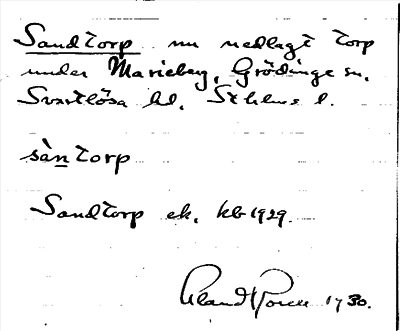 Sandtorp nu nedlagt torp
under Marieberg, Grödinge sn,
Svartlösa hd, Sthlms l.
sàntorp
Sandtorp ek. kb 1929.
1930.